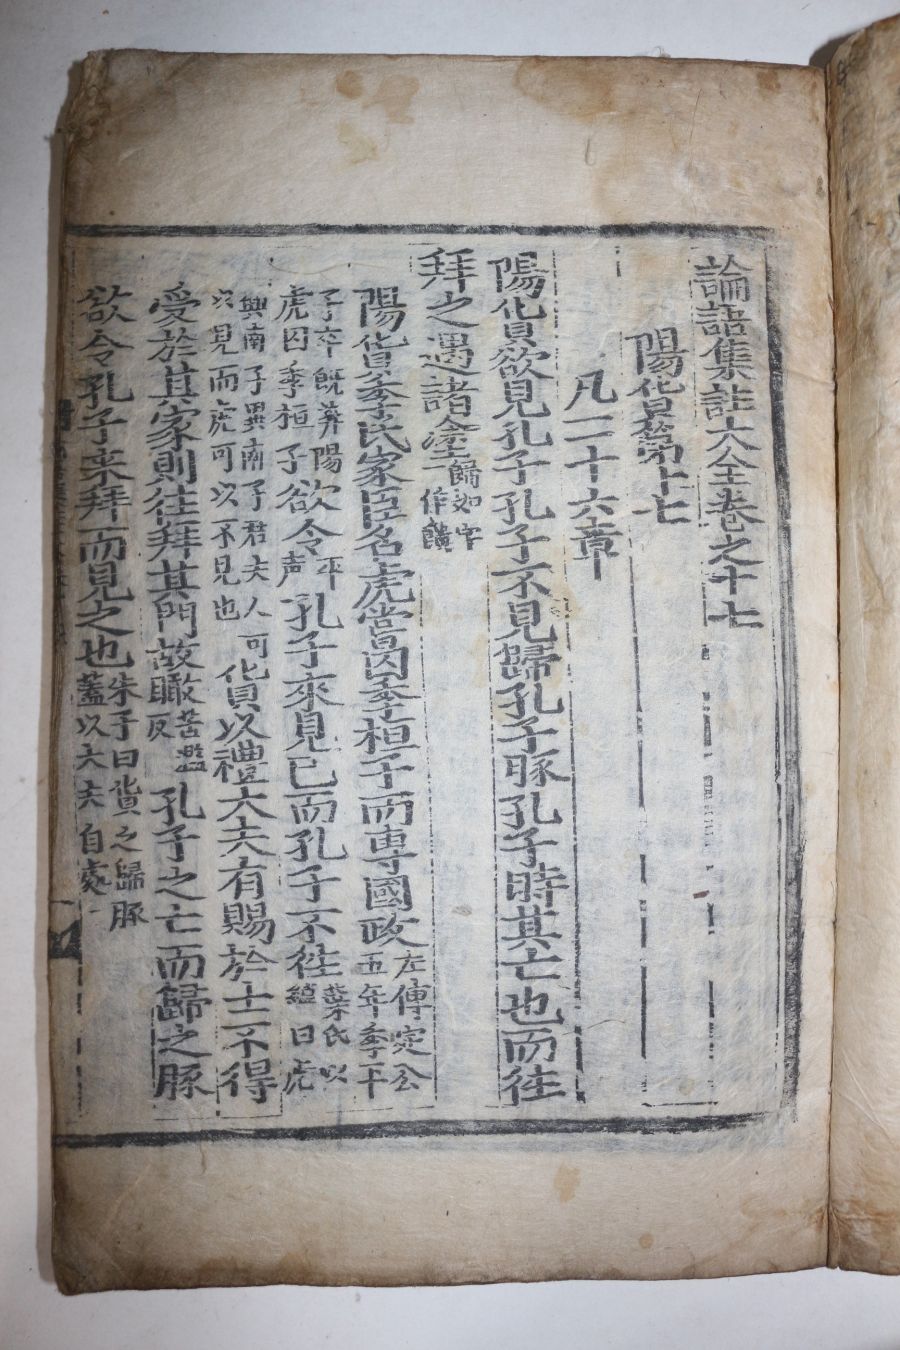 論語集註大全卷之十七
陽貨第十七
凡二十六章
陽貨欲見孔子孔子不見歸孔子豚孔子時其亡也而往
拜之遇諸塗歸如字一作饋
陽貨季氏家臣名虎嘗囚季桓子而専國政左傳定公五年季平
子卒既葬陽虎囚季桓子欲令平声孔子來見己而孔子不往葉氏少蘊曰虎
與南子異南子君夫人可以見而虎可以不見也貨以禮大夫有賜於士不得
受於其家則往拜其門故瞰苦濫反孔子之亡而歸之豚
欲令孔子来拜而見之也朱子曰貨之歸豚蓋以大夫自處